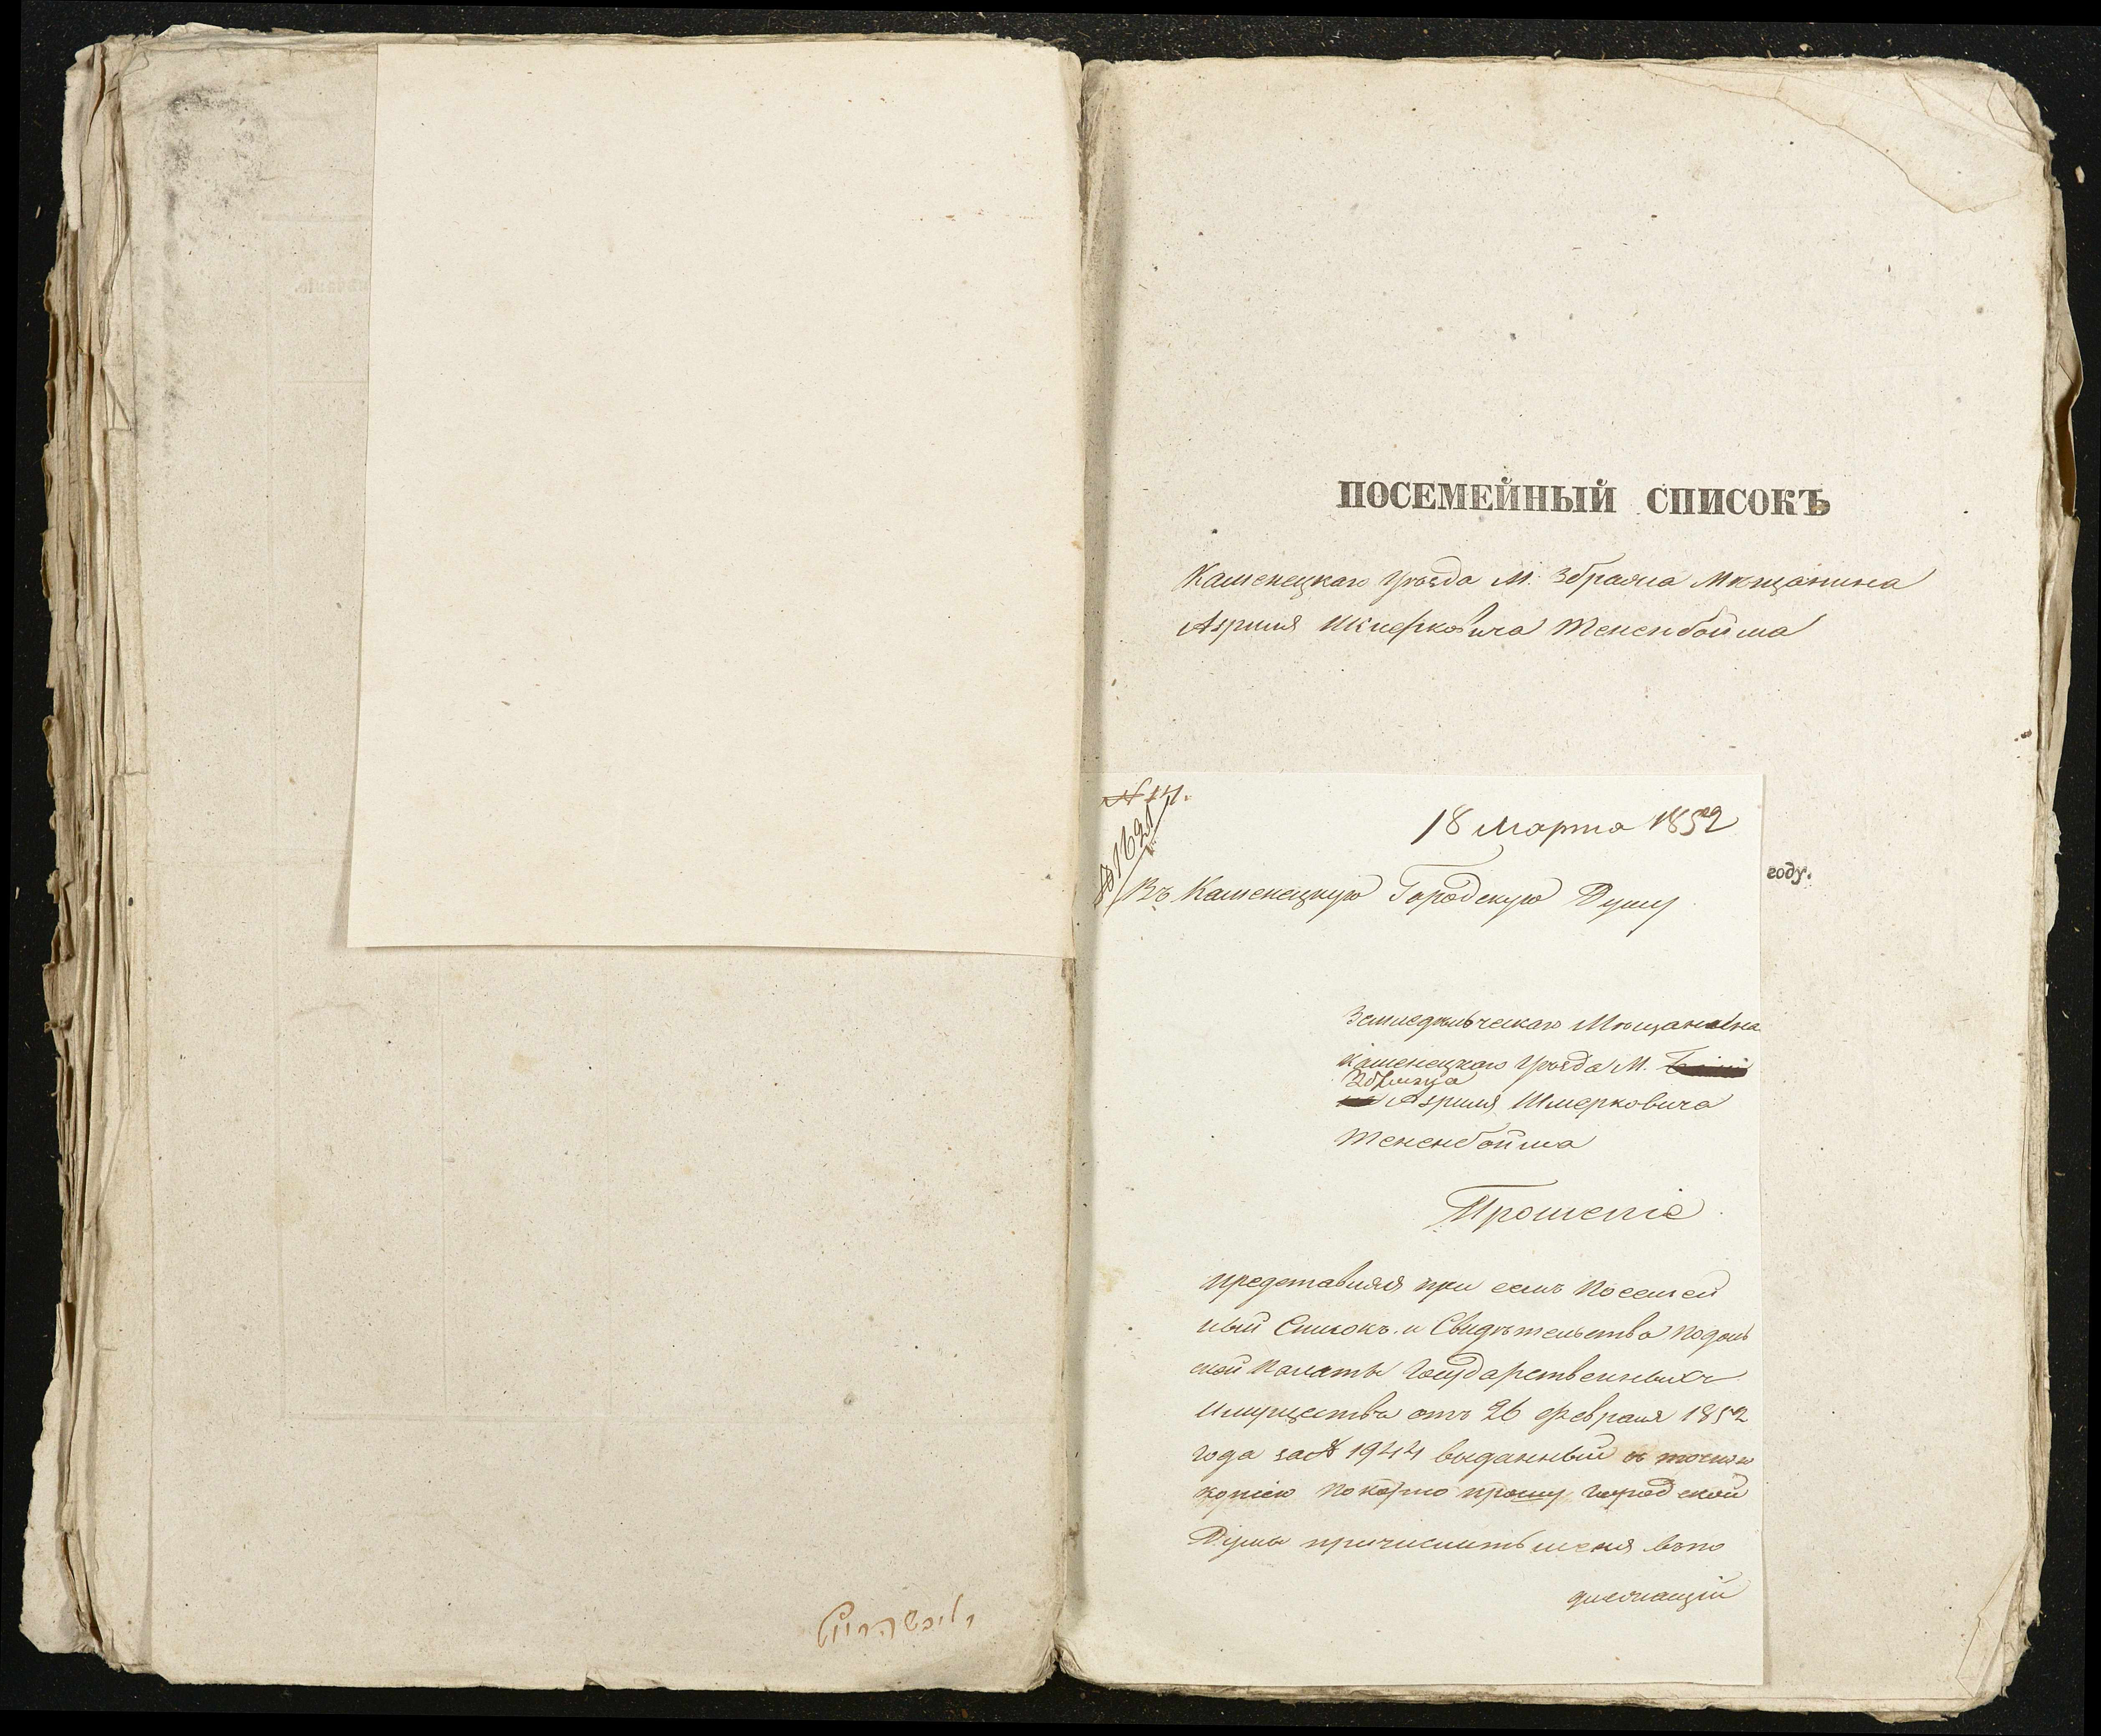 ПОСЕМЕЙНЫЙ СПИСОКЪ
Каменецкаго уѣзда М. Збрижа Мѣщанина
Азриля Шмерковича Тененбойма
№ 14.
№ 1621
18 Марта 1852
году.
Въ Каменецкую Городскую Думу
Земледѣльческаго Мѣщанина
Каменецкаго уѣзда М.
Збрижа
Азриля Шмерковича
Тененбойма
Прошеніе
представляя при семъ Посемей
ный Списокъ и Свидѣтельство Подоль
ской Палаты Государственныхъ
Имуществъ отъ 26 Февраля 1852
года за № 1944 выданный съ точною
копіею покорно прошу Городской
Думы причислить меня въ по
длежащій